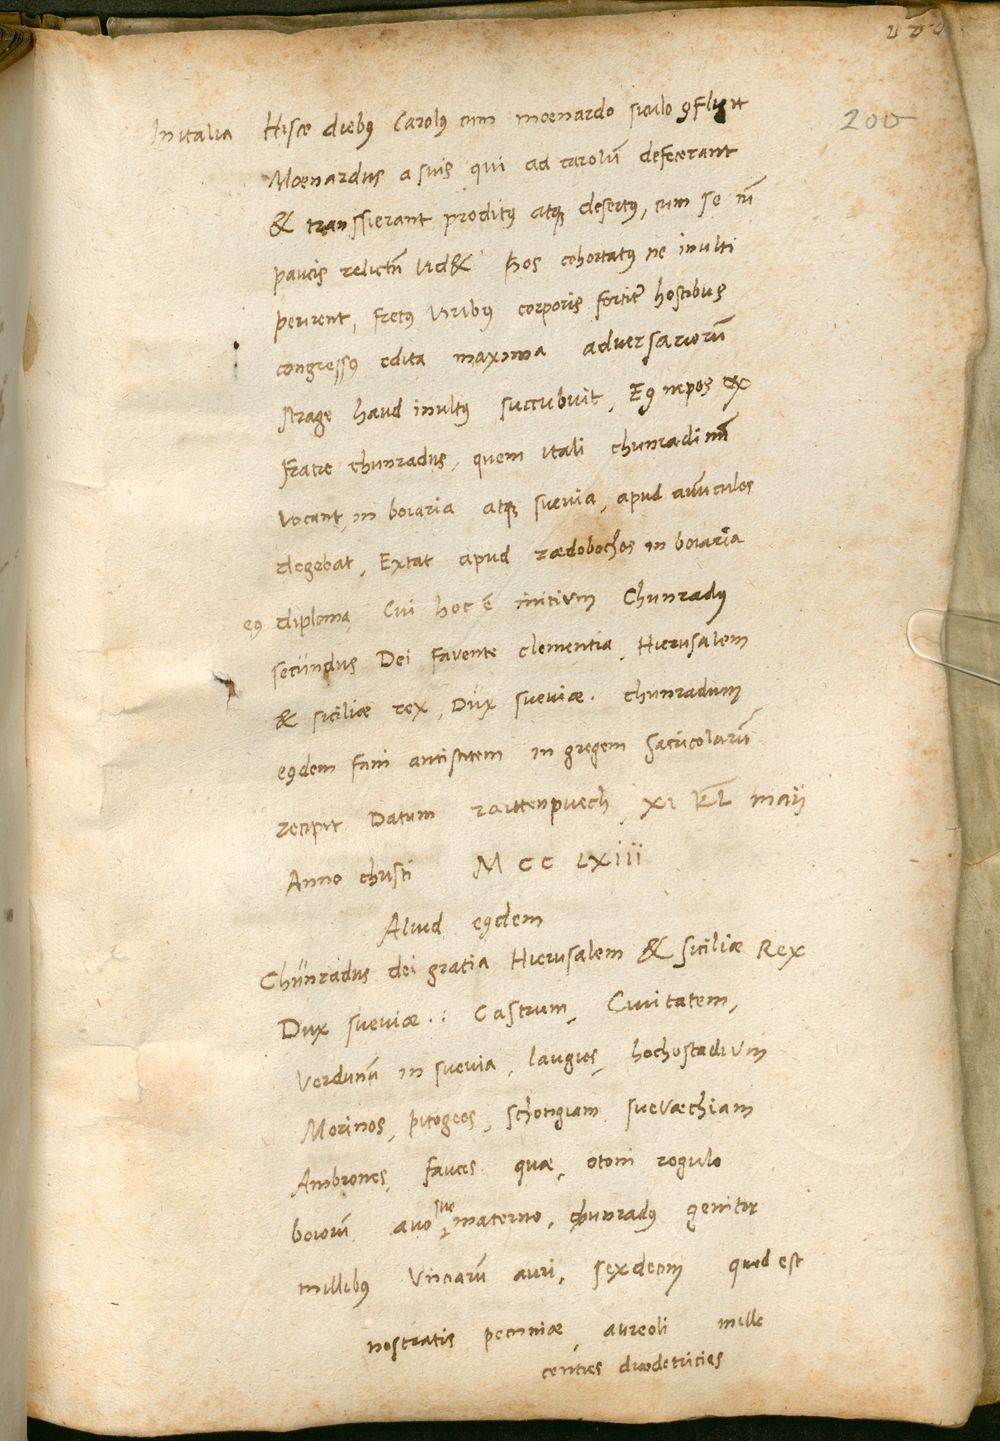 200
In italia Hisce diebꝰ Carolꝰ cum moenardo siculo ꝯfligit
Moenardus a suis qui ad carolū defecerant
& transsierant proditꝰ atqꝫ desertꝰ, cum se cū
paucis relictū vid& hos cohortatꝰ ne inulti
perirent, fretꝰ viribꝰ corporis fortit hostibus
congressꝰ edita maxima adversariorū
strage haud inultꝰ succubuit, Eꝰ nepos ex
fratre chunradus, quem itali chunradinū
vocant, in boiaria atqꝫ suevia, apud avūculos
degebat, Extat apud rædobochos in boiaria
eꝰ diploma Cui hoc ē initium Chunradꝰ
secundus Dei favente clementia, Hierusalem
& siciliæ rex, Dux sueviæ. chunradum
eꝰdem fani antistitem in gregem sacricolarū
recipit Datum raittenpuech, XI KL maij
Anno christi M CC LXIII
Aliud eꝰdem
Chunradus dei gratia Hierusalem & siciliæ Rex
Dux sueviæ .: Castrum, Civitatem,
Verdunū in suevia, laugios, hochostadium
Morinos, pitogeos, schongiam suevæchiam
Ambrones, fauces quæ, otoni regulo
boiorū avo suo materno, chunradꝰ genitor
millibꝰ Unciarū auri, sexdecim quod est
nostratis pecuniæ, aureoli mille
centies duodetricies